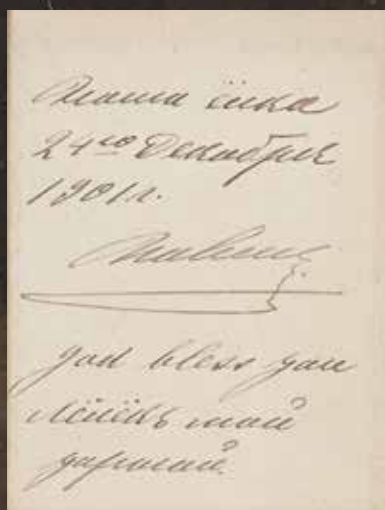 Наша ёлка
24го Декабря
1901г.
Павелъ
God bless you
Лёлёкъ мой
дорогой.